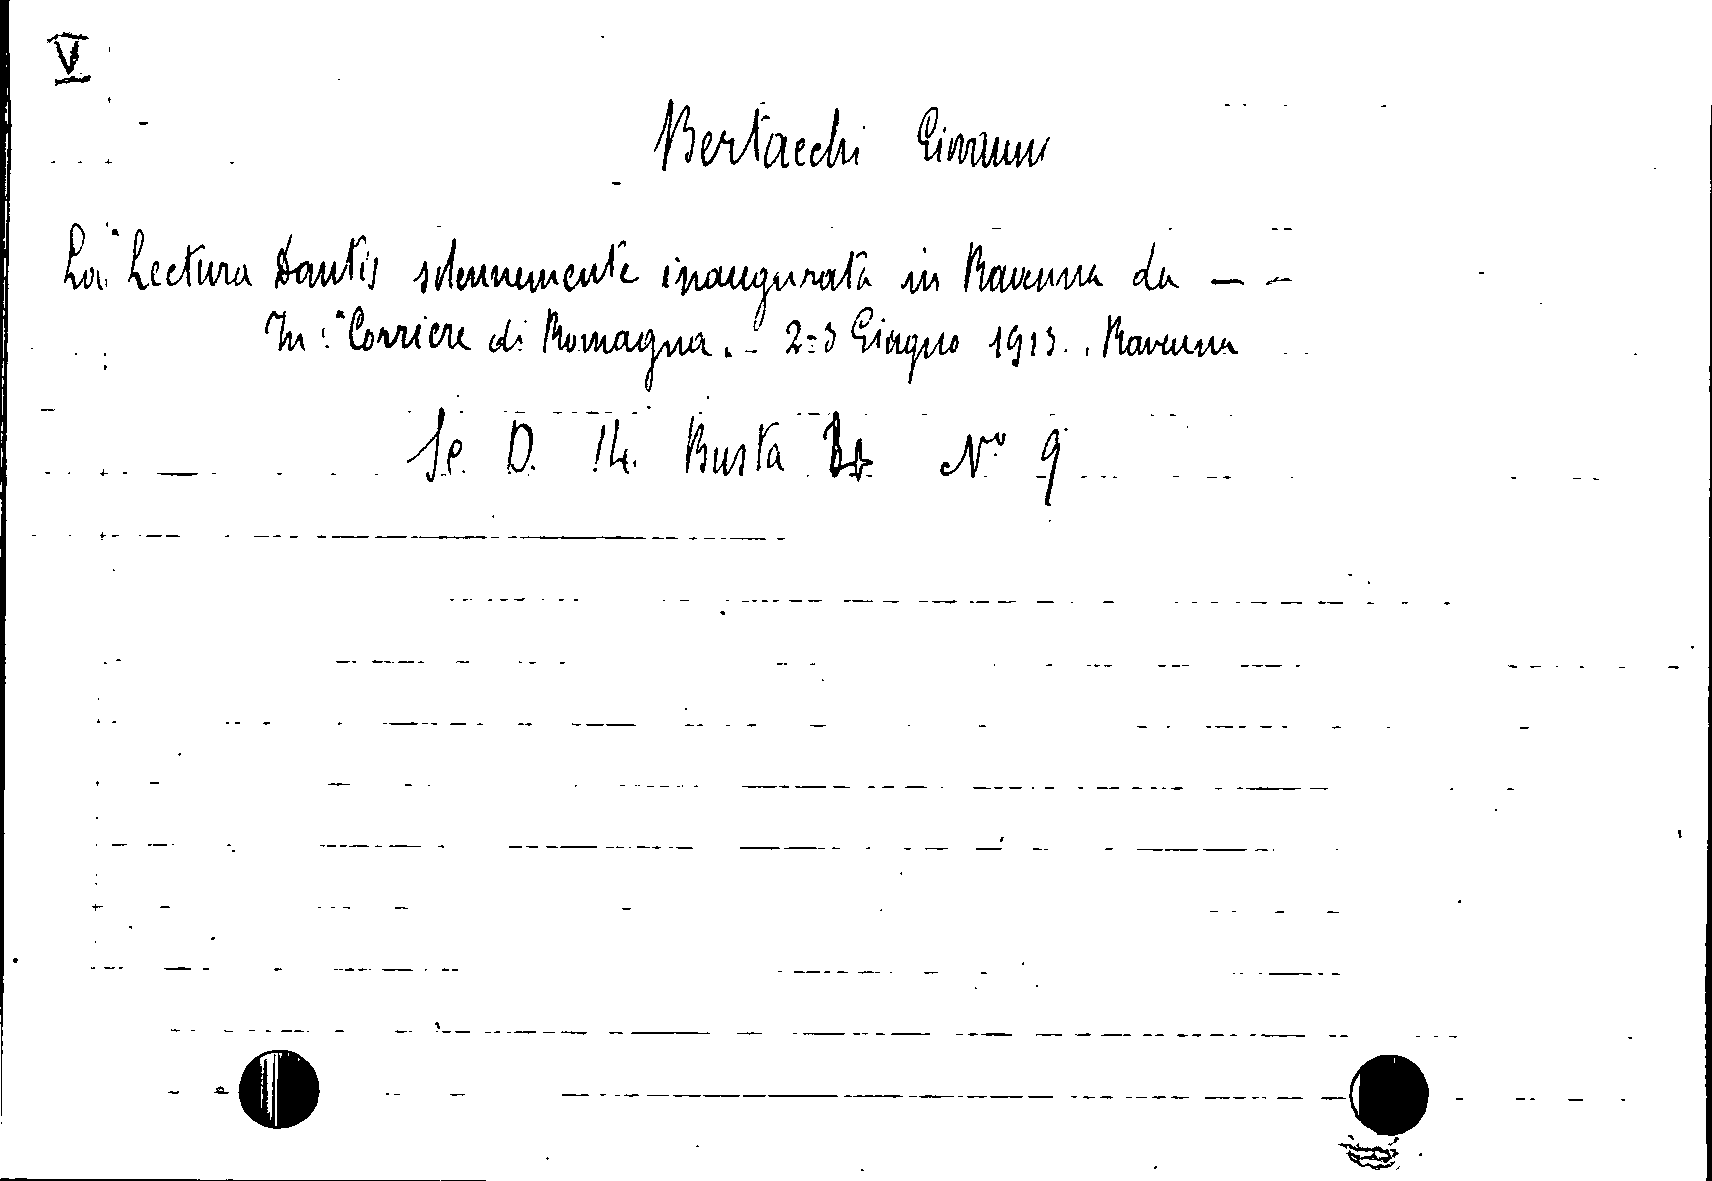 V
Bertacchi Giovanni
La "Lectura Dantis solennemente inaugurata in Ravenna da — —
In: "Corriere di Romagna. - 2=3 Giugno 1913. . Ravenna
Se. D. 14. Busta N.º 9